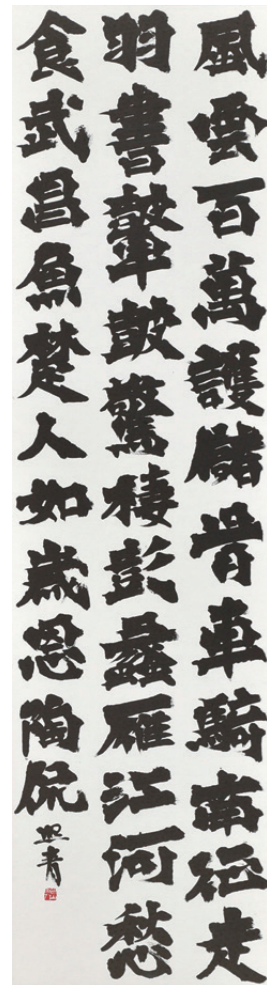 風雲百萬護儲胥車騎南征走
羽書鼙鼓驚棲彭蠡雁江河愁
食武昌魚楚人如歲恩陶侃